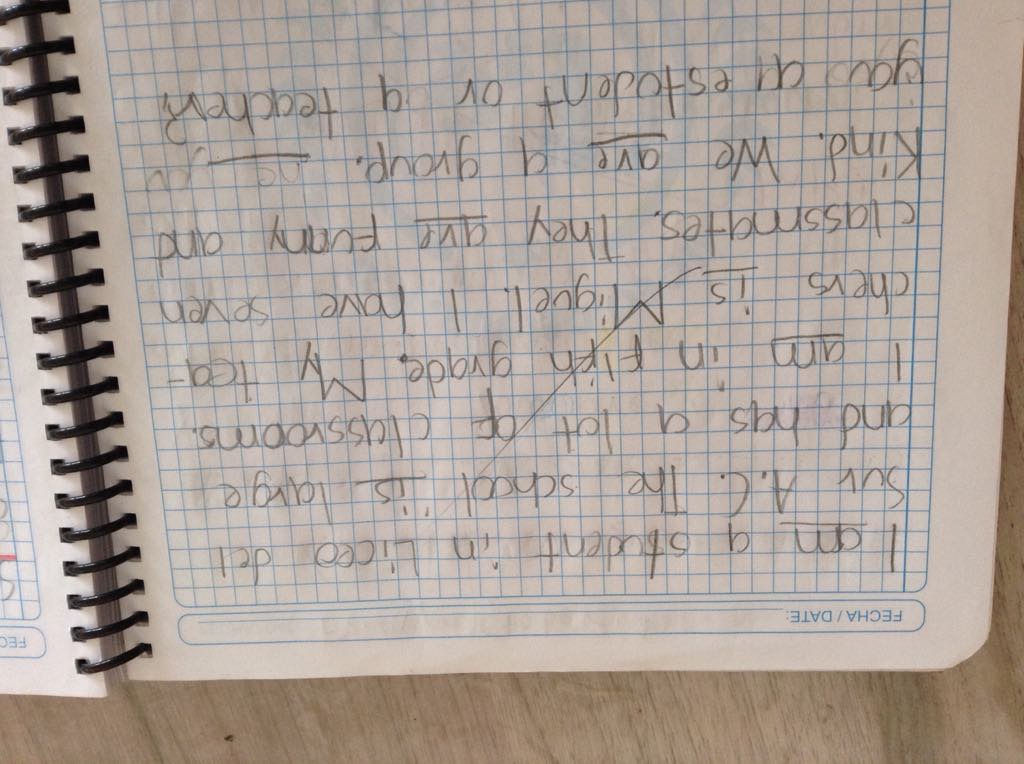 FECHA / DATE:
I am a student in Liceo del
Sur A.C. The school is large
and has a lot of classrooms.
I am in Fifth grade. My tea-
chers is Miguel. I have seven
classmates. They are Funny and
Kind. We are a group.
you an estudent or a teacher?